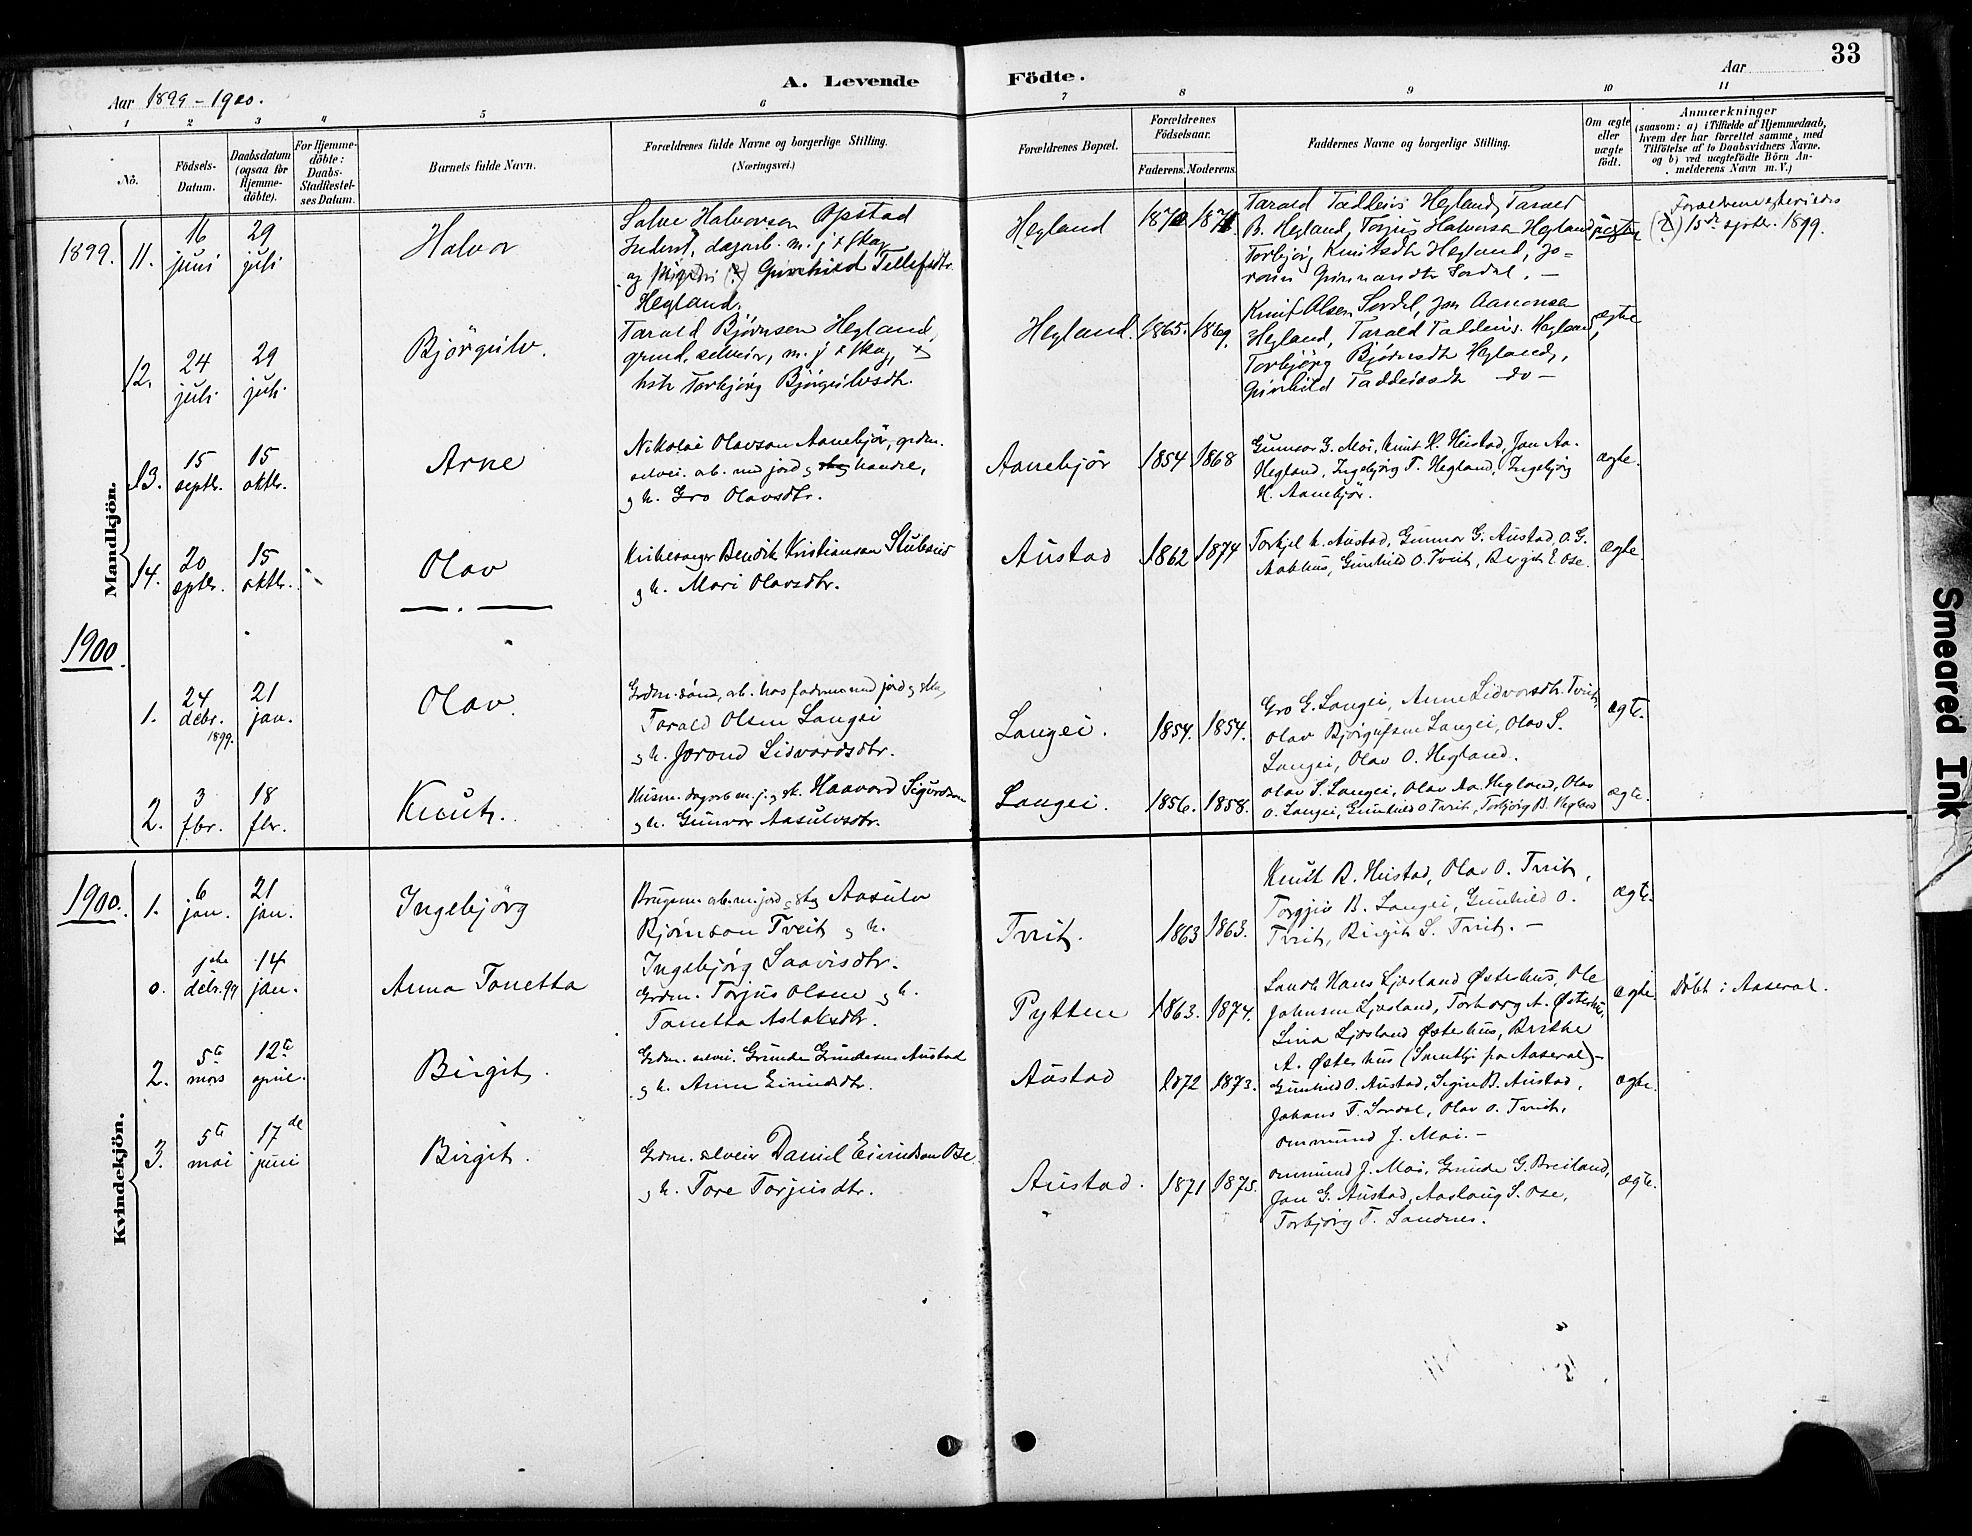 33
A. Levende Födte.
Aar 1899-1900.
Aar
1 2 3 4 5 6 7 8 9 10 11
No.
Födsels-Datum.
Daabsdatum (ogsaa for Hjemme-döbte).
For Hjemme-döbte: Daabs-Stadfæstel-ses Datum.
Barnets fulde Navn.
Forældrenes fulde Navne og borgerlige Stilling.
(Næringsvei.)
Forældrenes Bopæl.
Forældrenes Födselsaar.
Faderens. Moderens.
Faddernes Navne og borgerlige Stilling.
Om ægte eller uægte födt.
Anmærkninger
(saasom: a) i Tilfælde af Hjemmedaab,
hvem der har forrettet samme, med
Tilföielse af to Daabsvidners Navne.
og b) ved uægtefödte Börn An-
melderens Navn m. V.)
Mandkjön.
1899. 11. 16 juni 29 juli Halvor
Salve Halvorsen Opstad
Inderst, dagarb. m. j & skog
og (?) Gunhild Tellefsdtr.
Hegland.
Hegland
Tarald Taddeivs Hegland, Tarald
B. Hegland, Torjus Halvorsen Hegland
Torbjörg Knutsdtr Hegland, Jo-
ronn Gunnarsdtr Sordal. —
uægte
Forældrene
(?) 15de septbr. 1899.
12. 24 juli 29 juli Björgulv.
Tarald Björnsen Hegland,
grmd, selveier, m. j & skog,
hstr Torbjörg Björgulvsdtr.
Hegland. 1865. 1869.
Knut Olsen Sordal, Jon Aanonsen
Hegland, Tarald Taddeivs. Hegland,
Torbjörg Björnsdtr Hegland,
Gunhild Taddeivsdtr — do —
ægte
13. 15 septbr. 15 oktbr. Arne
Nikolai Olavson Aanebjör, grdm.
selvei. arb. med jord og handel,
og h. Gro Olavsdtr.
Aanebjör 1854 1868
Gunnar G. Moi, Knut H. Heistad, Jon Aa.
Hegland, Ingebjörg T. Hegland, Ingebjörg
K. Aanebjör.
ægte.
14. 20 septbr. 15 oktbr. Olav
Kirkesanger Bendik Kristianson Stubsrud
og h. Mari Olavsdtr.
Austad 1862 1874
Torkjel K. Austad, Gunnar G. Austad, O. G.
Aakhus, Gunhild O. Tveit, Bergit E. Ose.
ægte.
1900.
1. 24 debr. 1899. 21 jan. Olav.
Grdm. sönd, arb. hos faderen med jord og skog
Tarald Olsen Langei
og h. Jorand Sidvardsdtr.
Langei. 1854. 1854.
Gro G. Langei, Anne Sidvorsdtr. Tveit,
Olav Björgufsen Langei, Olav S.
Langei, Olav O. Hegland.
ægte.
2. 3 fbr. 18 fbr. Knut.
Husm. dagarb. m. j. og sk. Haavard Sigurdsen
og h. Gunvor Aasulvsdtr.
Langei. 1856. 1858.
Olav S. Langei, Olav Aa. Hegland, Olav
O. Langei, Gunhild O. Tveit, Torbjörg B. Hegland
ægte.
Kvindekjön.
1900. 1. 6 jan. 21 jan. Ingebjörg
Brugsm. arb. m. jord og skog Aasulv
Björnson Tveit og h.
Ingebjörg Saavisdtr.
Tveit. 1863 1863.
Knut B. Heistad, Olav O. Tveit,
Torgjus B. Langei, Gunhild O.
Tveit, Birgit S. Tveit. —
ægte.
0. debr. 99 14 jan. Anna Tonetta
Grdm. Torjus Olsen og h.
Tonetta Aslaksdtr.
Pytten 1863. 1874.
Hans Ljosland Østehus, Ole
Johnsen Ljosland, Torborg A. Østehus,
Lina Ljosland Østehus, Berthe
A. Østehus (Samtlige fra Aaseral) —
ægte.
Döbt i Aaseral.
2. 5te mars 12te april. Birgit.
Grdm. selvei. Grunde Grundesen Austad
og h. Anne Eivindsdtr.
Austad 1872 1873.
Gunhild O. Austad, Sigrid B. Austad,
Johans T. Sordal, Olav O. Tveit,
Ommund J. Moi. —
ægte.
3. 5te mai 17de juni Birgit.
Grdm. selveier Daniel Eivindson Ose
og h. Tore Torjusdtr.
Austad. 1871 1875.
Ommund J. Moi, Grunde G. Breiland,
Jon G. Austad, Aaslaug S. Ose,
Torbjörg T. Sandnes.
ægte.
Smeared Ink